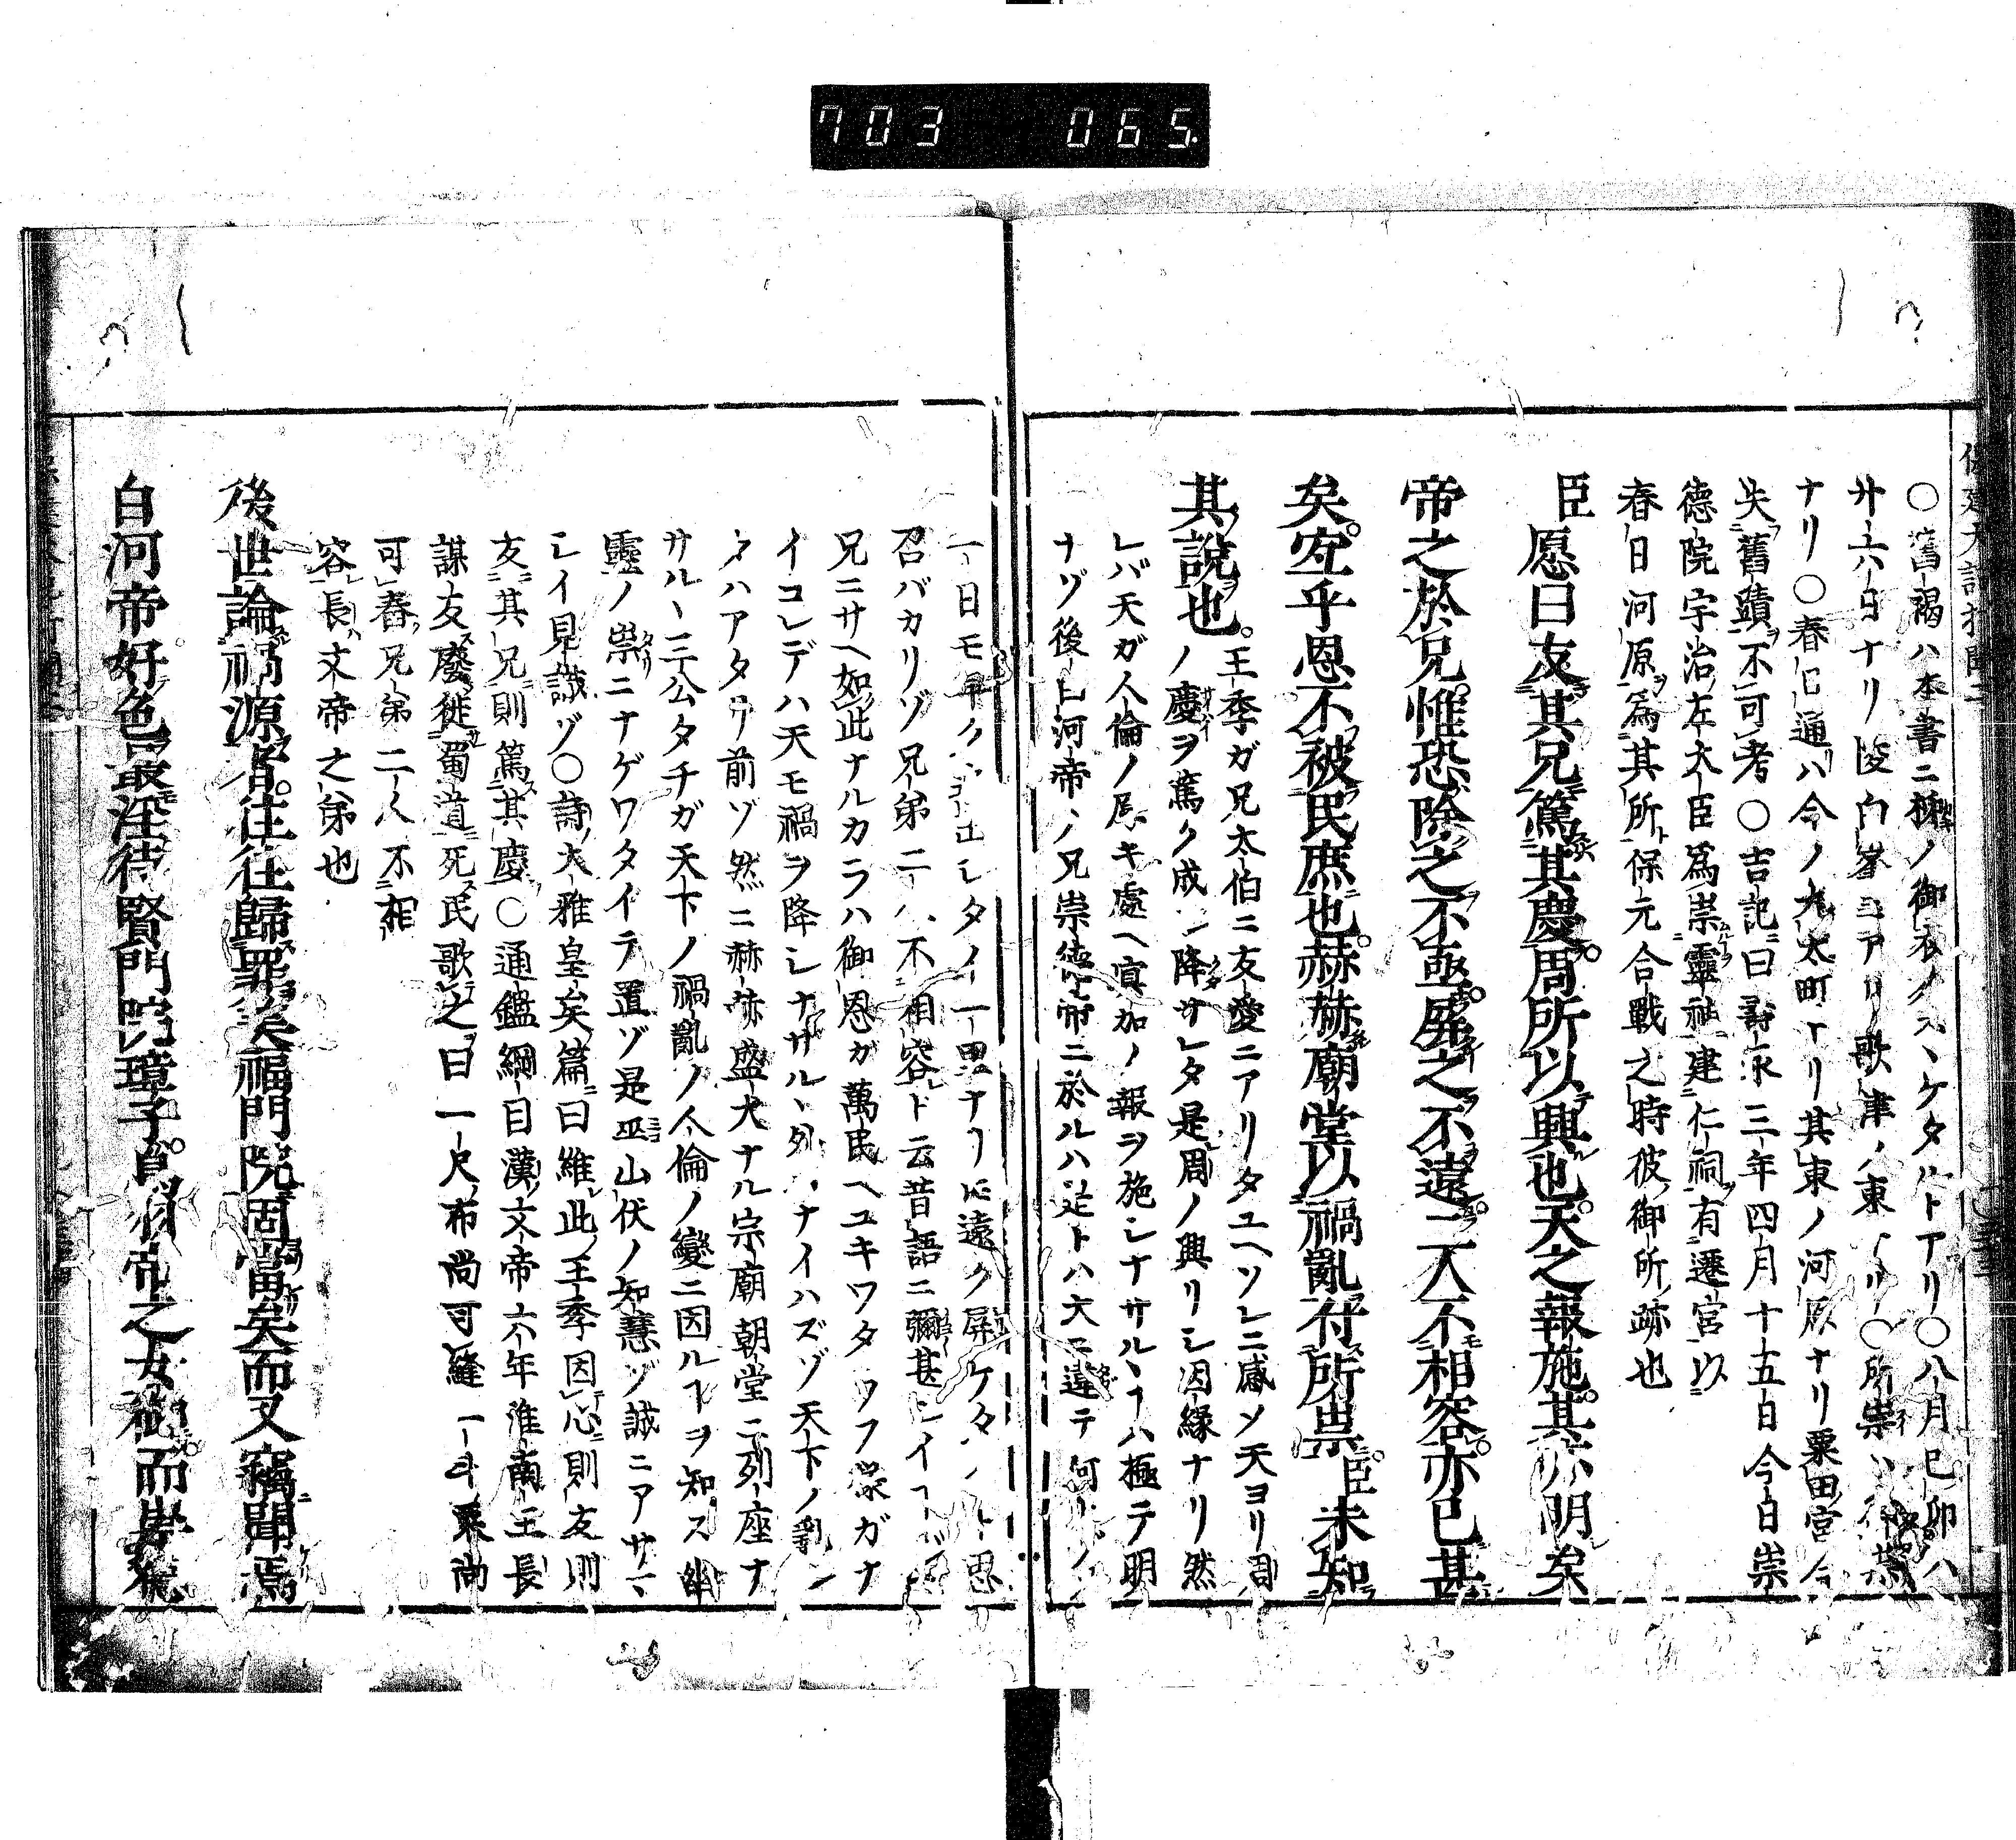 703 065
○舊褐ハ本書ニ練ノ御衣ノクスヽケタルトアリ○八月己卯ハ
廿六日ナリ陵白峯ニアリ歌津ノ東ナリ○所祟ハ
ナリ○春已通ハ今ノ丸太町ナリ其東ノ河原ナリ粟田宮今
失舊蹟不可考○吉記曰壽永三年四月十五日今日崇
德院宇治左大臣爲祟靈祉建仁祠有遷宮以
春日河原爲其所保元合戰之時彼御所跡也
臣愿曰友其兄篤其慶周所以興也天之報施其亦明矣
帝之於兄惟恐除之不亟屏之不遠二人不相容亦已甚
矣宐乎恩不被民庶也赫赫廟堂以禍亂符所祟臣未知
其說也王季ガ兄太伯ニ友愛ニアリタユヘソレニ感ソ天ヨリ周
ノ慶ヲ篤ク成シ降サレタ是周ノ興リシ因縁ナリ然
レバ天ガ人倫ノ厚キ處ヘ冥加ノ報ヲ施シナサルヽヿハ極テ明
ナゾ後白河帝ノ兄崇德帝ニ於ルハ是トハ大ニ違テ何
一日モ早クコロシタイ一里ナリ𪜈遠ク屏ケタイト思
召バカリゾ兄弟二人不相容ト云昔語ニ彌甚シイ
兄ニサヘ如此ナルカラハ御恩ガ萬民ヘユキワタ
イコレデハ天モ禍ヲ降シナサルヽ外ハナイハズゾ天下ノ亂
タハアタリ前ゾ然ニ赫赫盛大ナル宗廟朝堂ニ列座ナ
サルヽ三公タチガ天下ノ禍亂ノ人倫ノ變ニ因ルヿヲ知ス
靈ノ祟ニナゲワタイテ置ゾ是巫山伏ノ知慧ゾ誠ニアサマ
シイ見識ゾ○詩大雅皇矣篇曰維此王季因心則友則
友其兄則篤其慶○通鑑綱目漢文帝六年淮南王長
謀友廢徙蜀道死民歌之曰一尺布尚可縫一斗粟尚
可舂兄弟二人不相
容長文帝之弟也
後世論禍源者往往歸罪美福門院固當矣而又竊聞焉
白河帝好色最淫待賢門院璋子自爲帝之女御而崇德